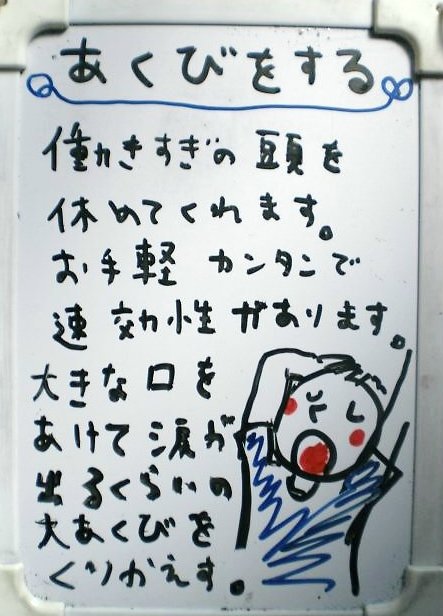 あくびをする
働きすぎの頭を
休めてくれます。
お手軽 カンタンで
速効性があります。
大きな口を
あけて涙が
出るくらいの
大あくびを
くりかえす。